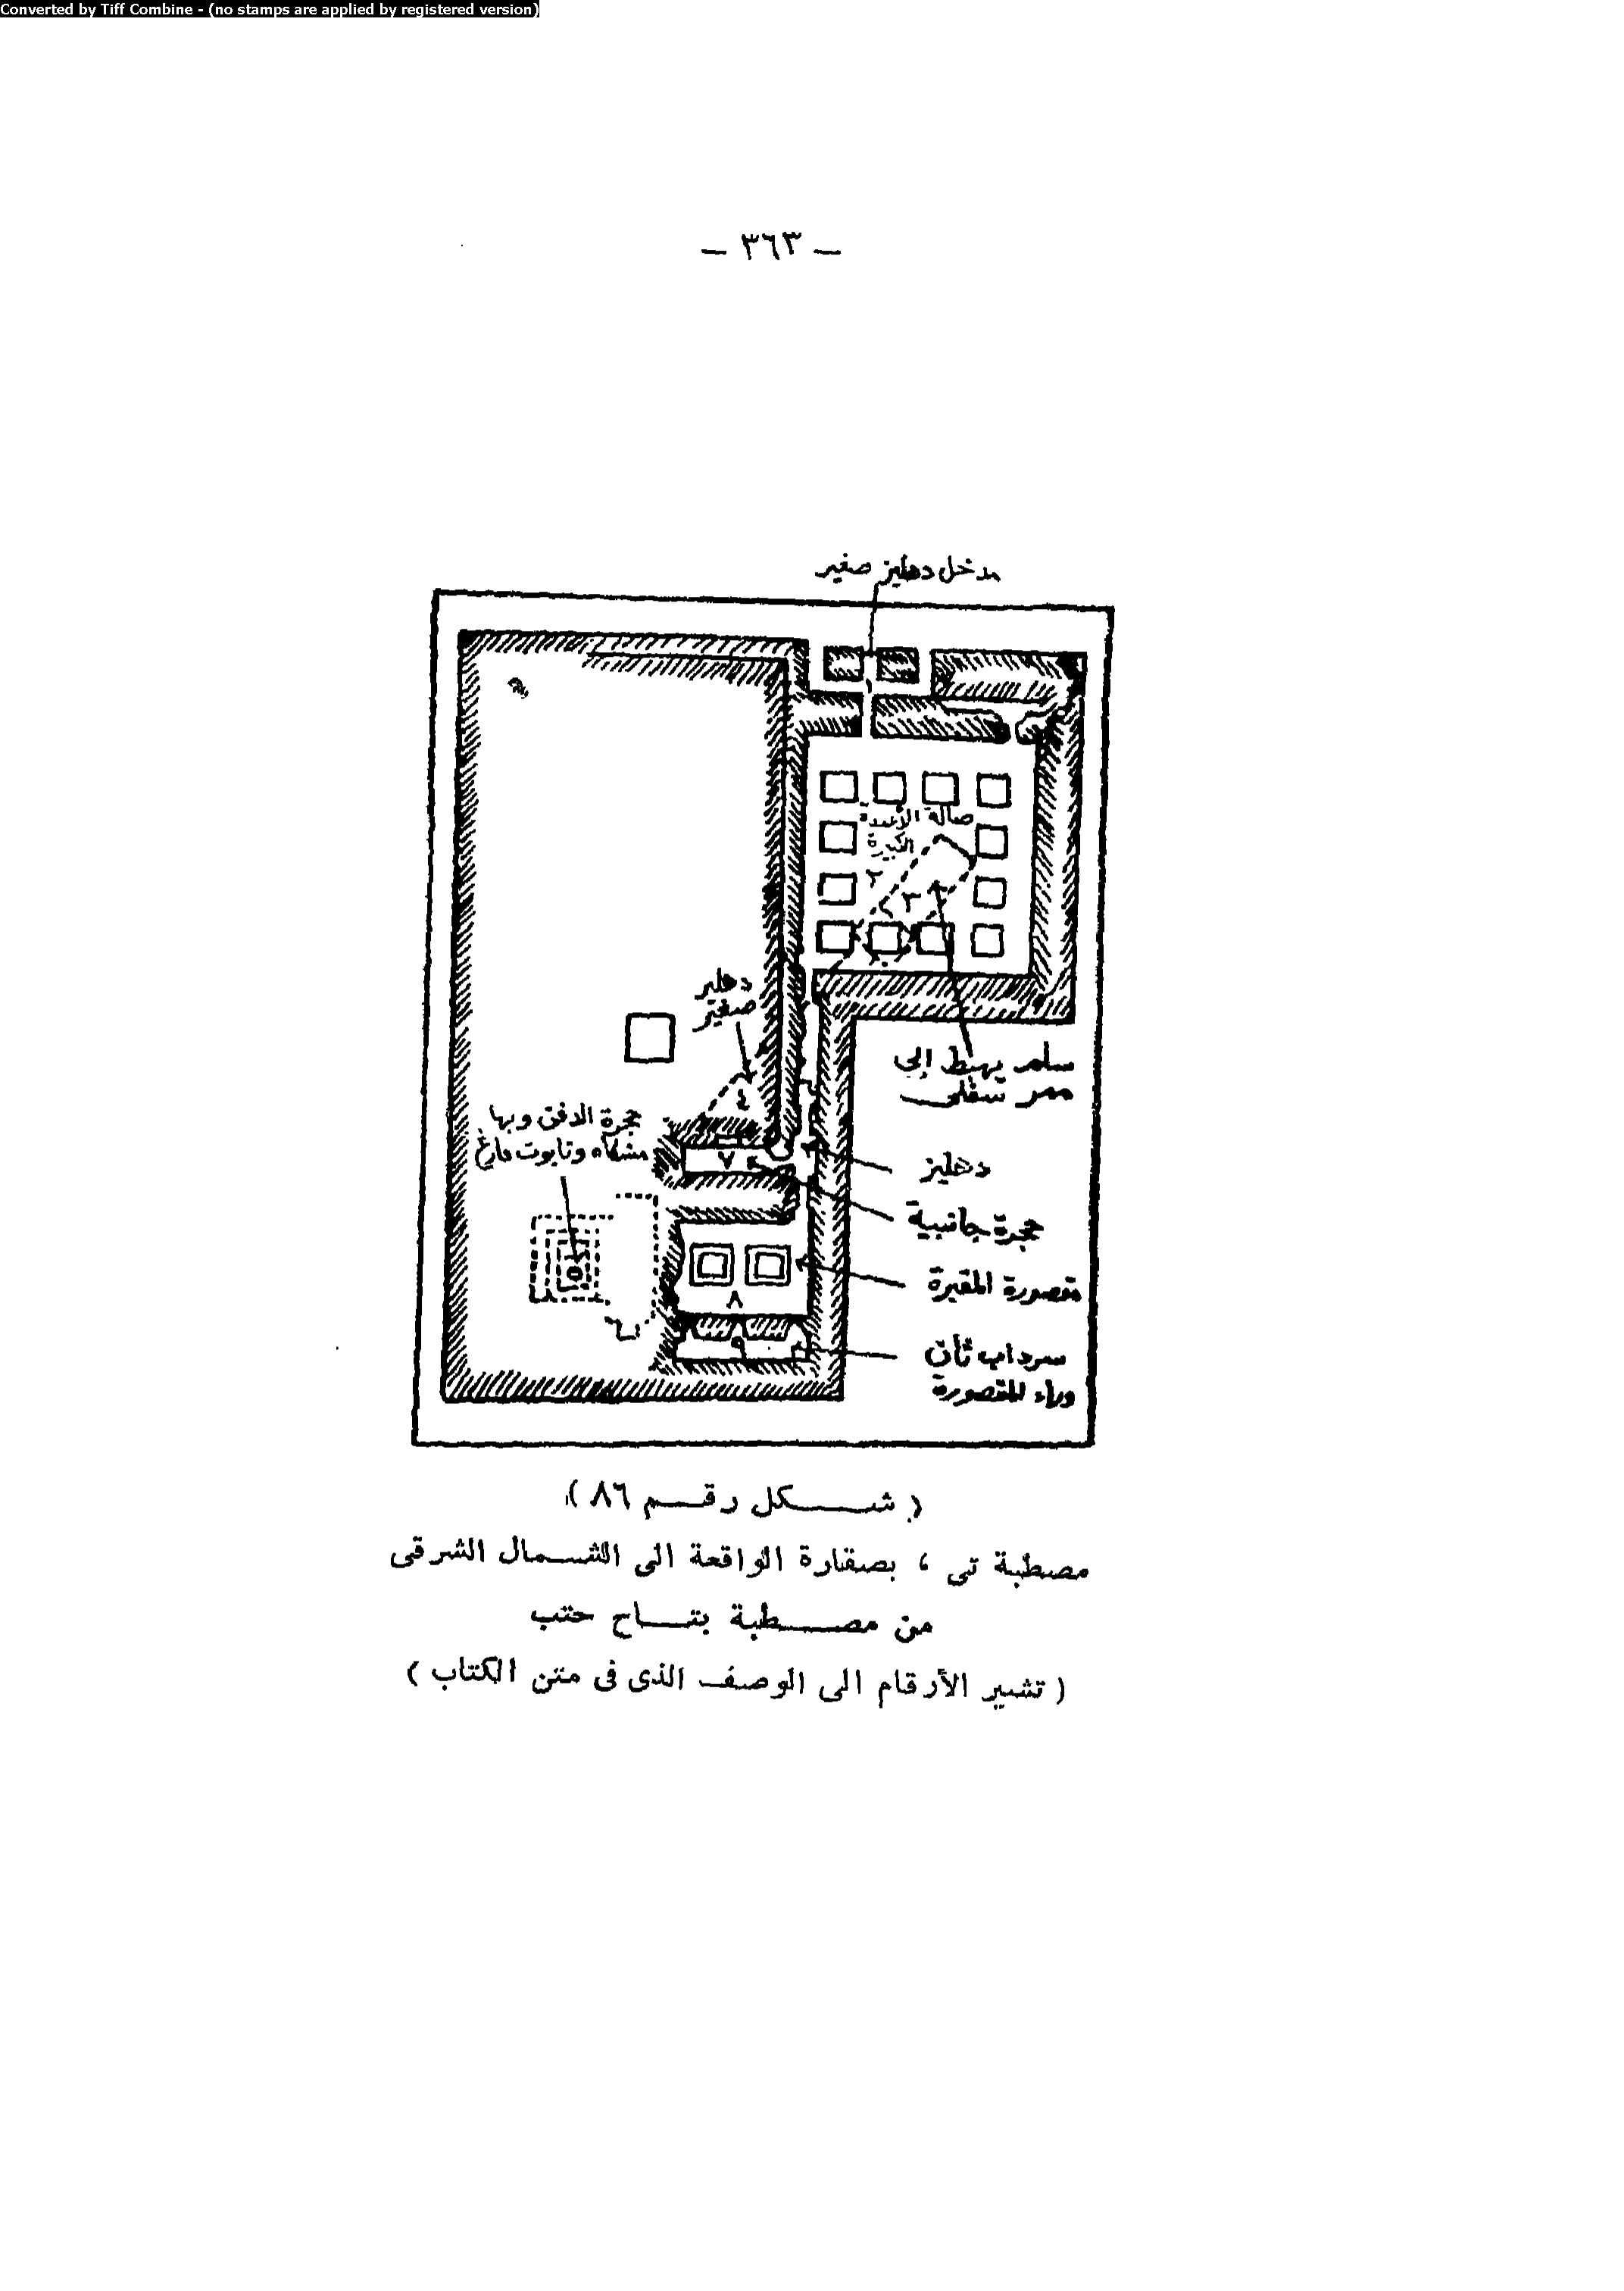 Converted by Tiff Combine - (no stamps are applied by registered version)
— ٣٦٣ —
مدخل دهليز صغير
١
صالة الأعمدة
الكبيرة
٢
٣
دهليز
صغير
٤
سلم يهبط إلى
ممر سفلى
حجرة الدفن وبها
مشكاه وتابوت فارغ
٥
دهليز
٧
حجرة جانبية
مقصورة المقبرة
٨
سرداب ثان
وراء المقصورة
٩
( شكل رقم ٨٦ )
مصطبة تى ، بصقارة الواقعة الى الشمال الشرقى
من مصطبة بتاح حتب
( تشير الأرقام الى الوصف الذى فى متن الكتاب )